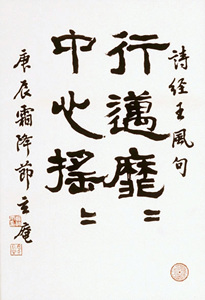 詩経王風句
行邁靡〻
中心摇〻
庚辰霜降節玄庵